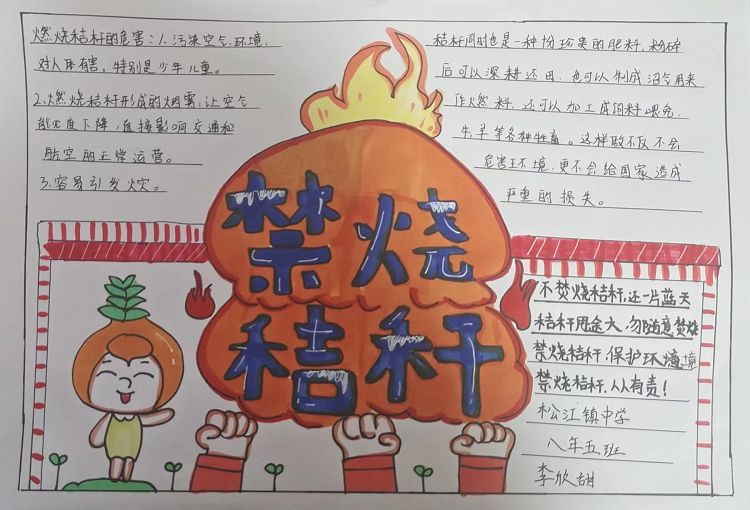 燃烧秸秆的危害:1.污染空气、环境,
对人体有害,特别是少年儿童。
2.燃烧秸秆形成的烟雾,让空气
能见度下降,直接影响交通和
航空的正常运营。
3.容易引发火灾。
秸秆同时也是一种份珍贵的肥料,粉碎
后可以深耕还田,也可以制成沼气用来
作燃料,还可以加工成饲料喂兔,
牛,羊等各种牲畜。这样做不仅不会
危害环境,更不会给国家造成
严重的损失。
禁烧
秸秆
不焚烧秸秆,还一片蓝天
秸秆用途大,勿随意焚烧
禁烧秸秆,保护环境境
禁烧秸秆,人人有责!
松江镇中学
八年五班
李欣甜